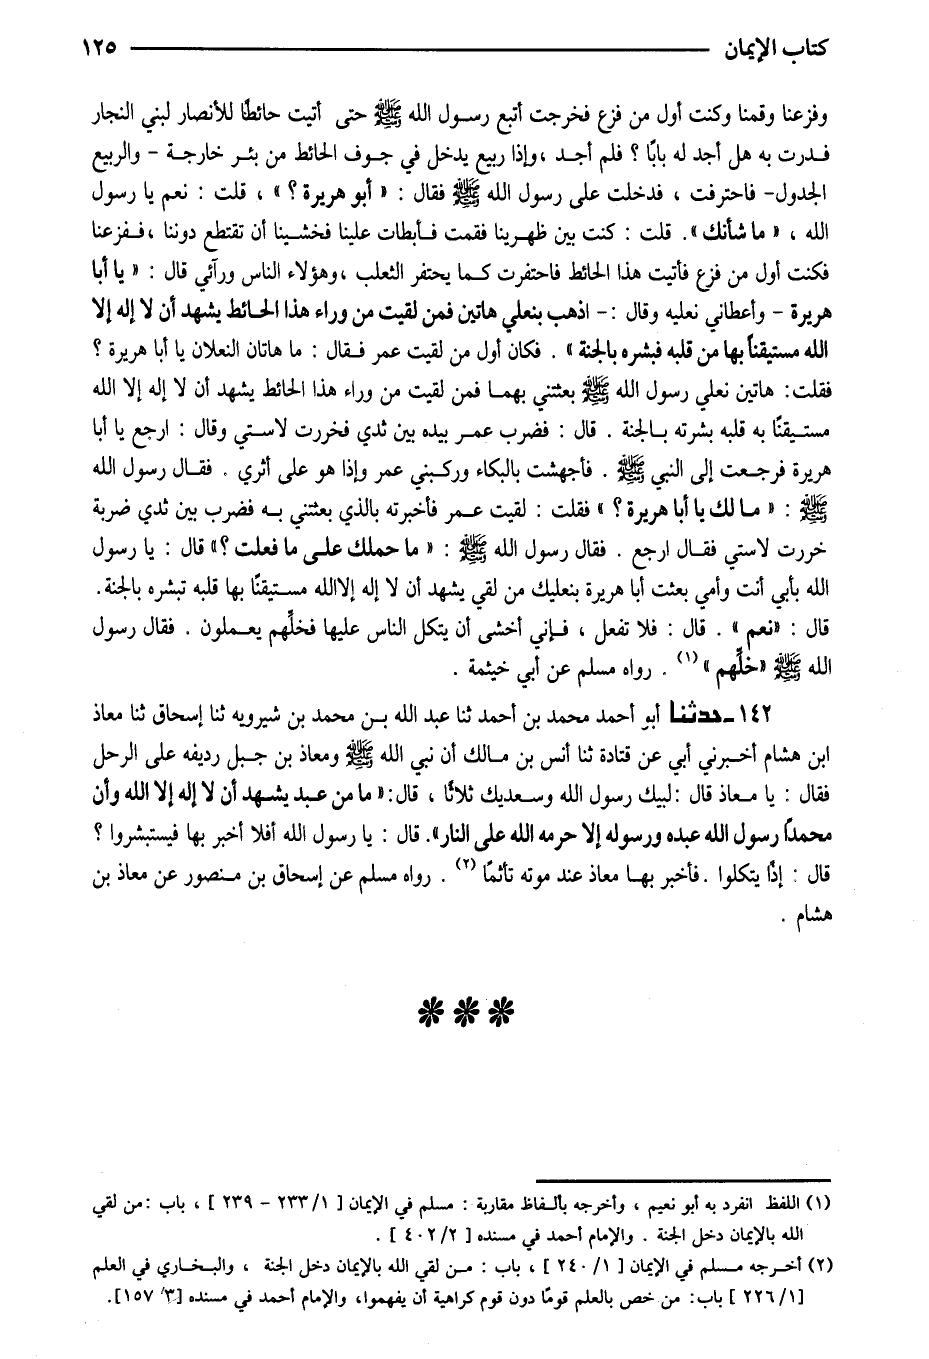 كتاب الإيمان ١٢٥
وفزعنا وقمنا وكنت أول من فزع فخرجت أتبع رسول الله ﷺ حتى أتيت حائطًا للأنصار لبني النجار
فدرت به هل أجد له بابًا ؟ فلم أجد ،وإذا ربيع يدخل في جوف الحائط من بئر خارجة - والربيع
الجدول- فاحترفت ، فدخلت على رسول الله ﷺ فقال : « أبو هريرة ؟ » ، قلت : نعم يا رسول
الله ، « ما شأنك ». قلت : كنت بين ظهرينا فقمت فأبطات علينا فخشينا أن تقتطع دوننا ،ففزعنا
فكنت أول من فزع فأتيت هذا الحائط فاحتفرت كما يحتفر الثعلب ،وهؤلاء الناس ورآئي قال : « يا أبا
هريرة - وأعطاني نعليه وقال :- اذهب بنعلي هاتين فمن لقيت من وراء هذا الحائط يشهد أن لا إله إلا
الله مستيقناً بها من قلبه فبشره بالجنة » . فكان أول من لقيت عمر فقال : ما هاتان النعلان يا أبا هريرة ؟
فقلت: هاتين نعلي رسول الله ﷺ بعثتني بهما فمن لقيت من وراء هذا الحائط يشهد أن لا إله إلا الله
مستيقنًا به قلبه بشرته بالجنة . قال : فضرب عمر بيده بين ثدي فخررت لاستي وقال : ارجع يا أبا
هريرة فرجعت إلى النبي ﷺ . فأجهشت بالبكاء وركبني عمر وإذا هو على أثري . فقال رسول الله
ﷺ : « ما لك يا أبا هريرة ؟ » فقلت : لقيت عمر فأخبرته بالذي بعثتني به فضرب بين ثدي ضربة
خررت لاستي فقال ارجع . فقال رسول الله ﷺ : « ما حملك على ما فعلت ؟» قال : يا رسول
الله بأبي أنت وأمي بعثت أبا هريرة بنعليك من لقي يشهد أن لا إله إلاالله مستيقنًا بها قلبه تبشره بالجنة.
قال : «نعم » . قال : فلا تفعل ، فإني أخشى أن يتكل الناس عليها فخلِّهم يعملون . فقال رسول
الله ﷺ «خلِّهم » (١) . رواه مسلم عن أبي خيثمة .
١٤٢ـ حدثنا أبو أحمد محمد بن أحمد ثنا عبد الله بن محمد بن شيرويه ثنا إسحاق ثنا معاذ
ابن هشام أخبرني أبي عن قتادة ثنا أنس بن مالك أن نبي الله ﷺ ومعاذ بن جبل رديفه على الرحل
فقال : يا معاذ قال :لبيك رسول الله وسعديك ثلاثًا ، قال:« ما من عبد يشهد أن لا إله إلا الله وأن
محمداً رسول الله عبده ورسوله إلا حرمه الله على النار». قال : يا رسول الله أفلا أخبر بها فيستبشروا ؟
قال : إذًا يتكلوا .فأخبر بها معاذ عند موته تأثمًا (٢) . رواه مسلم عن إسحاق بن منصور عن معاذ بن
هشام .
(١) اللفظ انفرد به أبو نعيم ، وأخرجه بألفاظ مقاربة : مسلم في الإيمان [ ١/ ٢٣٣ - ٢٣٩ ] ، باب :من لقي
الله بالإيمان دخل الجنة . والإمام أحمد في مسنده [ ٢/ ٤٠٢ ] .
(٢) أخرجه مسلم في الإيمان [ ١/ ٢٤٠ ] ، باب : من لقي الله بالإيمان دخل الجنة ، والبخاري في العلم
[١/ ٢٢٦ ] باب: من خص بالعلم قومًا دون قوم كراهية أن يفهموا، والإمام أحمد في مسنده [٣/ ١٥٧].